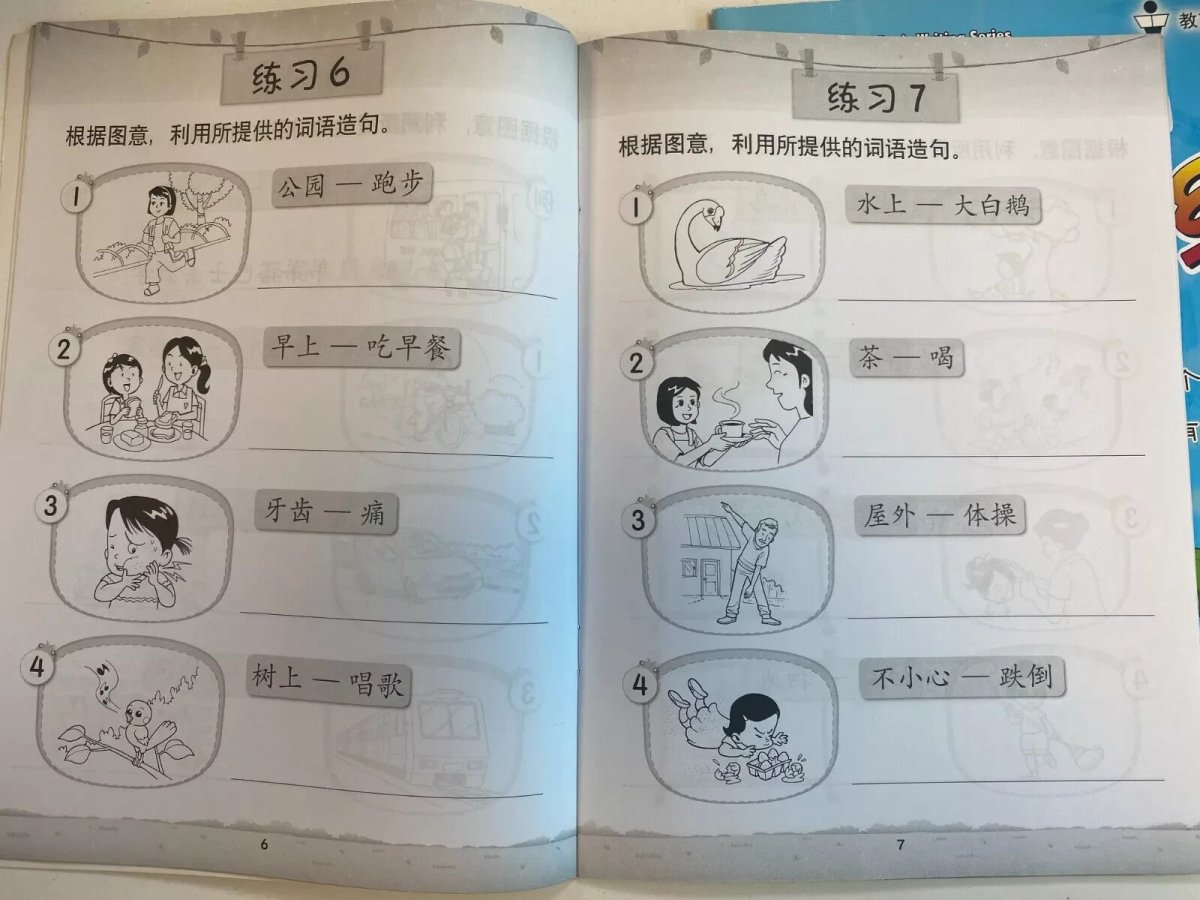 练习6
根据图意，利用所提供的词语造句。
1
公园 — 跑步
2
早上 — 吃早餐
3
牙齿 — 痛
4
树上 — 唱歌
6
练习7
根据图意，利用所提供的词语造句。
1
水上 — 大白鹅
2
茶 — 喝
3
屋外 — 体操
4
不小心 — 跌倒
7
Writing Series
教
个